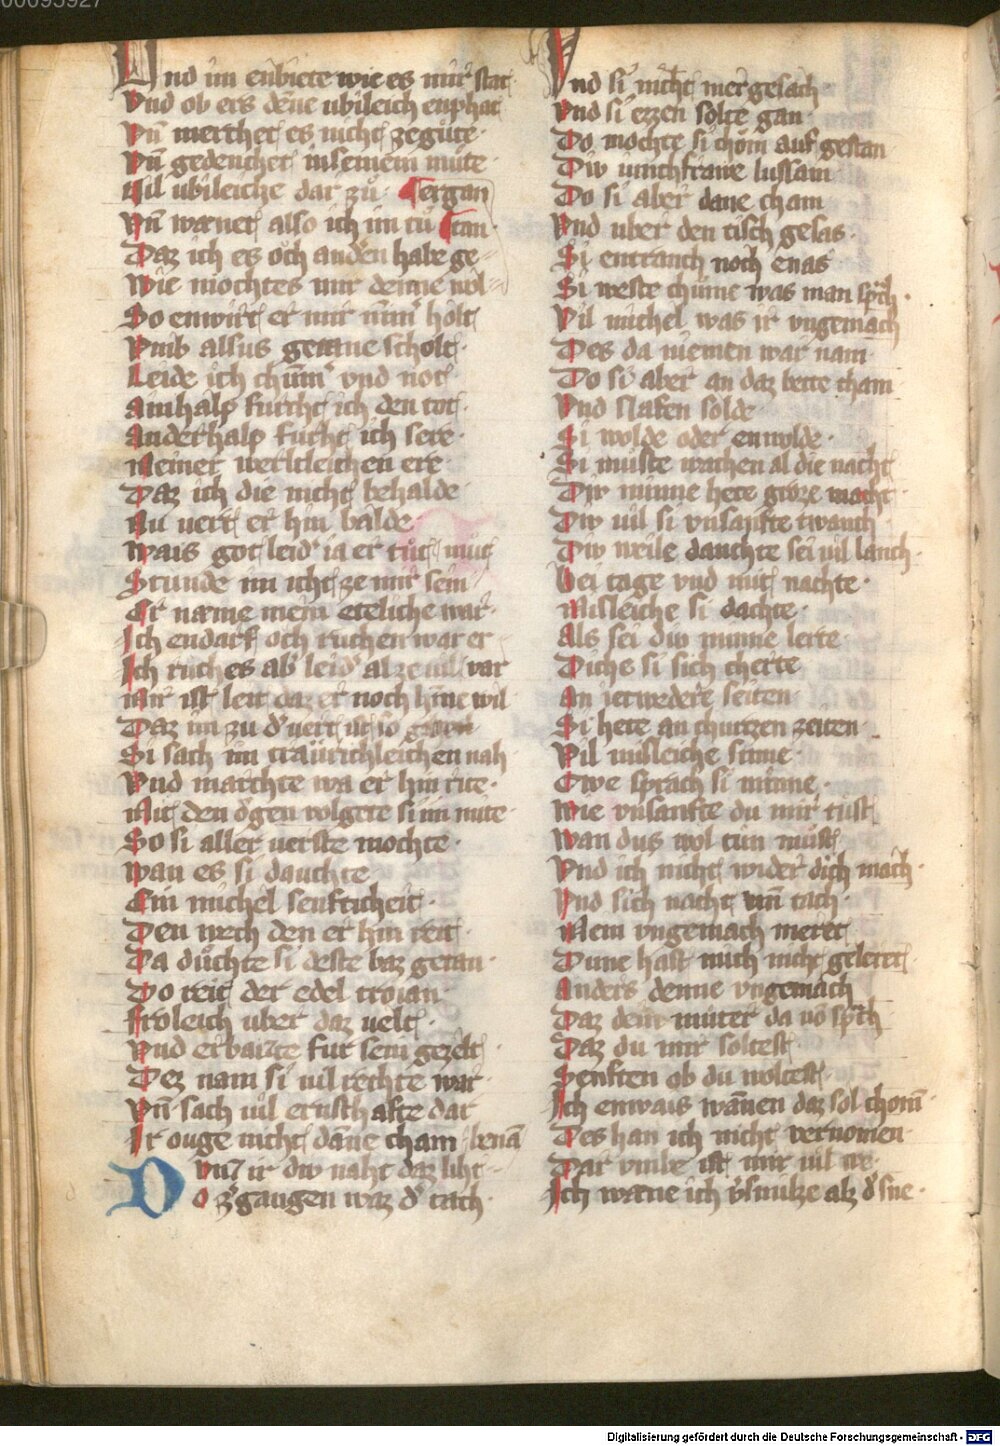 00095927
Vnd im enbiete wie es mir stat
Vnd ob ers denne ubileich enphat
Vn̄ merchet es nicht zegůte
Vn̄ gedenchet in seinem můte
Vil ubileiche dar zů · tergan
Vn̄ wænet also ich im tů tan
Daz ich es och anden habe ge
Wie mochtes mir denne wol
So enwirt er mir nim̄ holt
Vmb alsus getane scholt
Leide ich chum̄ vnd not
Ainhalp furcht ich den tot
Anderhalp furht ich sere
Meiner werltleichen ere
Daz ich die nicht behalde
Nu uert er hin balde
Wais got leid ia er tůt můt
Stunde im icht ze mir sein
Er næme mein eteliche war
Ich endarf och ruchen war er
Ich ruch es ab leid al ze uil var
Mir ist leit daz er noch hine wil
Daz im zu d uert ist so
Si sach im traurichleichen nah
Vnd marchte wa er hin rite
Mit den ogen volgete si im mite
So si aller uerste mochte
Wan es si dauchte
Ein michel senfticheit
Den wech den er hin reit
Da duchte si deste baz getan
Do reit der edel troian
Froleich uber daz uelt
Vnd erbaizte fur sein gezelt
Dez nam si uil rechte war
Vn̄ sach uil ernsthafte dar
Ir ouge nicht dāne cham benā
Do ir diw naht daz liht
Do zgangen waz d tach
Vnd si nicht mer gesach
Vnd si ezzen solte gan
Do mochte si chom auf gestan
Diw iunchfrawe lussam
Do si aber dane cham
Vnd uber den tisch gesas
Si entranch noch enas
Si weste chume was man sprach
Vil michel was ir vngemach
Des da niemen war nam
Do si aber an daz bette cham
Vnd slafen solde
Si wolde oder enwolde
Si muste wachen al die nacht
Diw minne hete groze macht
Diw uil si vnsanfte twanch
Diw weile dauchte sei uil lanch
Bei tage vnd mit nachte
Misleiche si dachte
Als sei diu minne lerte
Dichs si sich cherte
An ietwedere seiten
Si hete an churtzen zeiten
Vil misleiche sinne
Owe sprach si minne
Wie vnsanfte du mir tust
Wan dus wol tun must
Vnd ich nicht wider dich mach
Vnd sich nacht vnn̄ tach
Mein vngemach meret
Dune hast mich nicht geleret
Anders denne vngemach
Daz dein muter da vō sprach
Daz du mir soltest
Senften ob du woltest
Ich enwais wānen daz sol chom̄
Des han ich nicht vernomen
Dar vmbe ist mir uil we
Ich wæne ich vsmilze alz d sne
Digitalisierung gefördert durch die Deutsche Forschungsgemeinschaft - DFG